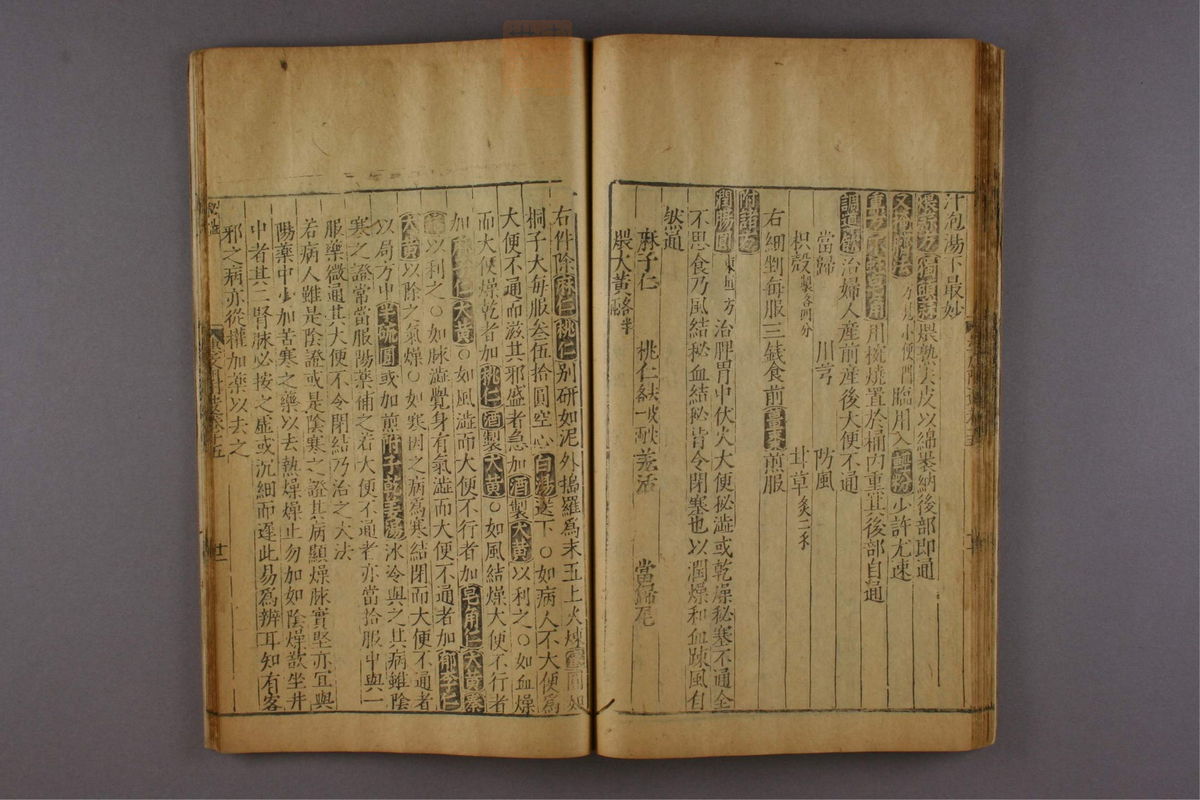 汁泡湯下最妙
煨蒜方獨頭蒜煨熟去皮以綿裹納後部即通
又 小便門臨用入輕粉少許尤速
皂角用椀燒置於桶內熏其後部自通
調導飲治婦人産前産後大便不通
當歸 川芎 防風
枳殼製各四分 甘草炙二分
右細剉每服三錢食前薑棗煎服
附諸方
潤腸圓東垣方治脾胃中伏火大便秘澁或乾燥秘塞不通全
不思食乃風結秘血結秘皆令閉塞也以潤燥和血踈風自
然通
麻子仁 桃仁去皮尖各一兩 羗活 當歸尾
煨大黃各半兩
右件除麻仁桃仁別研如泥外搗羅爲末五上火煉蜜圓如
桐子大每服叁伍拾圓空心白湯送下○如病人不大便爲
大便不通而滋其邪盛者急加酒製大黃以利之○如血燥
而大便燥乾者加桃仁酒製大黃○如風結燥大便不行者
加麻子仁大黃○如風澁而大便不行者加皂角仁大黃秦
艽以利之○如脉澁覺身有氣澁而大便不通者加郁李仁
大黃以除之氣燥○如寒因之病爲寒結閉而大便不通者
以局方中半硫圓或加煎附子乾姜湯冰冷與之其病雖陰
寒之證常當服陽藥補之若大便不通者亦當拾服中與一
服藥微通其大便不令閉結乃治之大法
若病人雖是陰證或是陰寒之證其病顯燥脉實堅亦宜與
陽藥中少加苦寒之藥以去熱燥燥止勿加如陰燥欲坐井
中者其二腎脉必按之虛或沉細而遲此易爲辨耳知有客
邪之病亦從權加藥以去之
秘澁
廿一